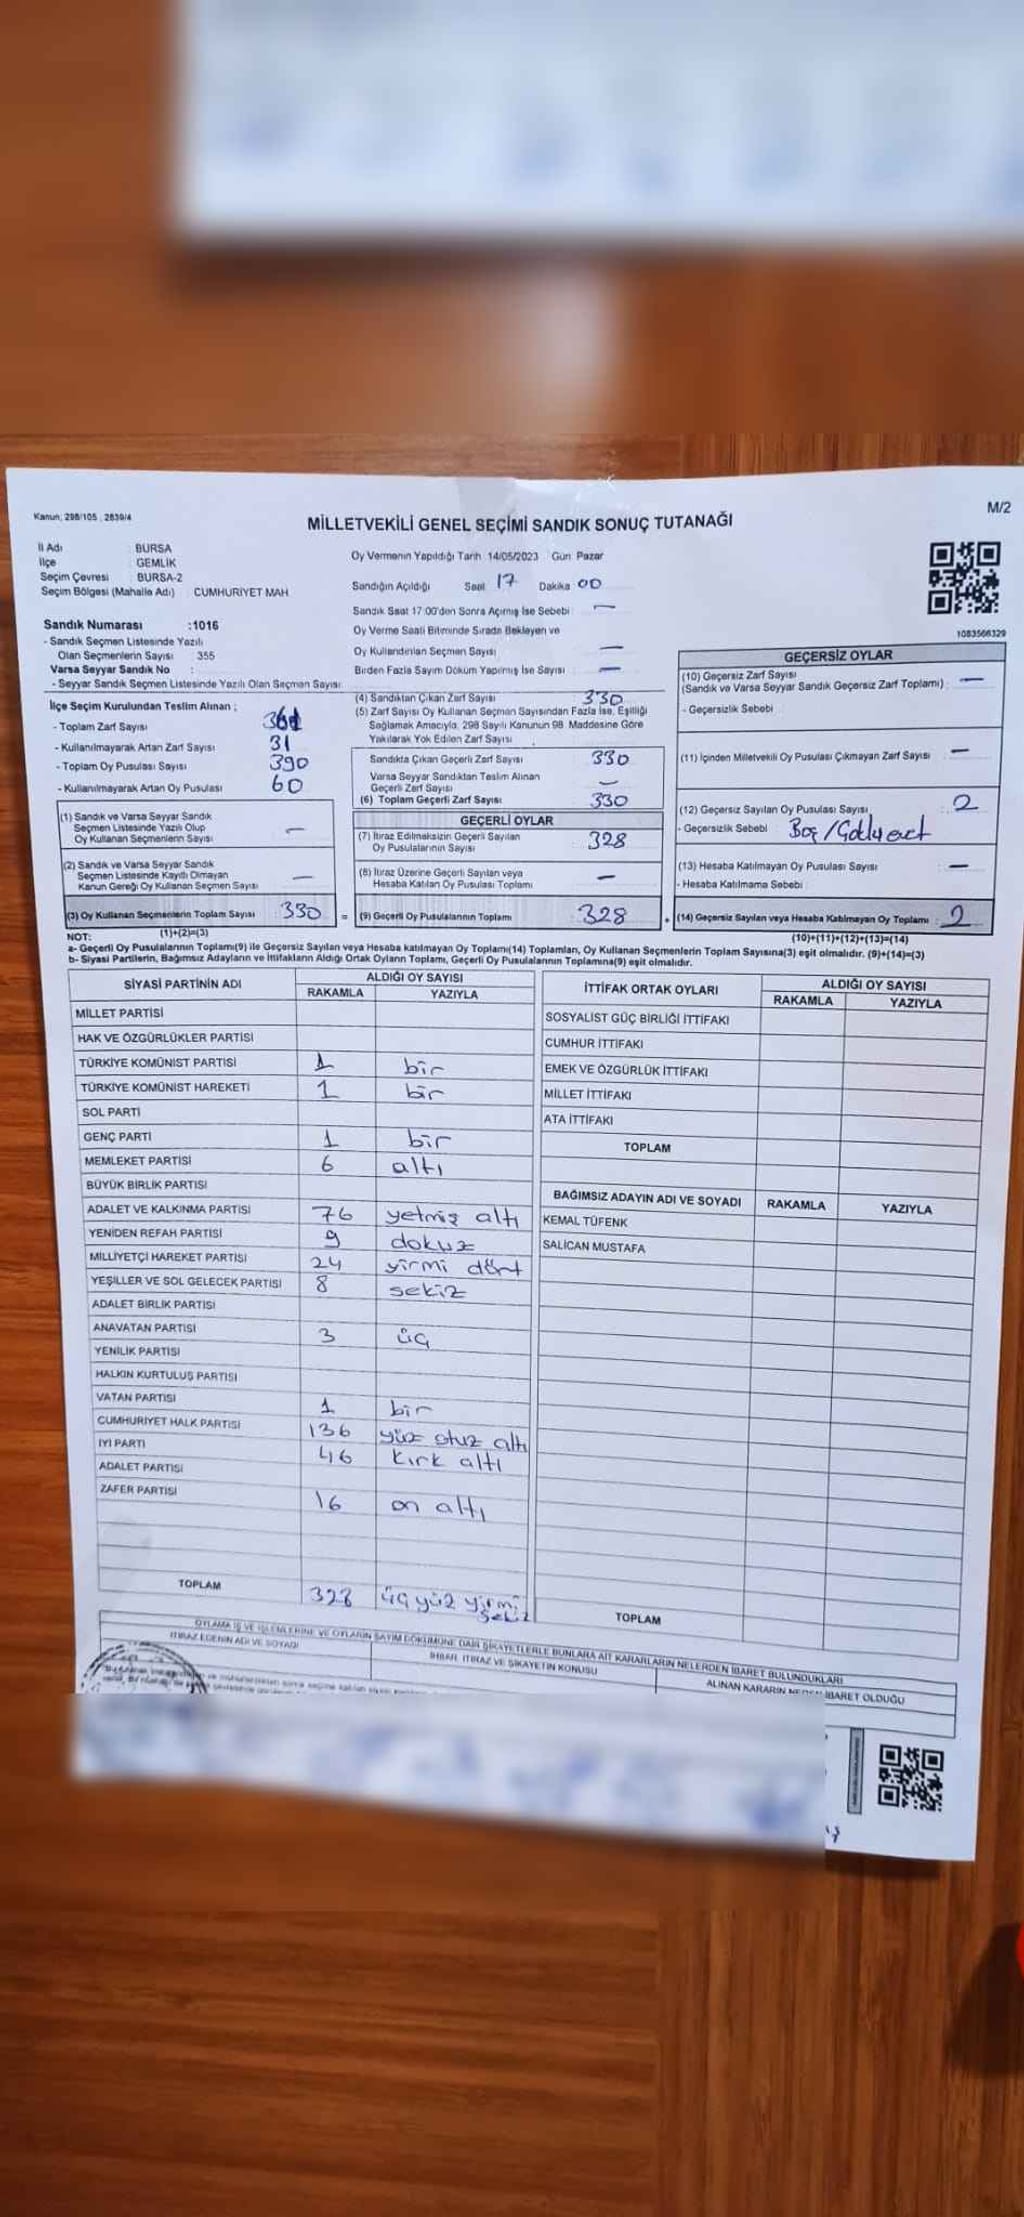 Kanun; 298/105 , 2839/4
M/2
MİLLETVEKİLİ GENEL SEÇİMİ SANDIK SONUÇ TUTANAĞI
İl Adı : BURSA
İlçe : GEMLİK
Seçim Çevresi : BURSA-2
Seçim Bölgesi (Mahalle Adı) : CUMHURİYET MAH
Sandık Numarası :1016
- Sandık Seçmen Listesinde Yazılı
Olan Seçmenlerin Sayısı : 355
Varsa Seyyar Sandık No :
- Seyyar Sandık Seçmen Listesinde Yazılı Olan Seçmen Sayısı
Oy Vermenin Yapıldığı Tarih 14/05/2023 Gün: Pazar
Sandığın Açıldığı Saat 17 Dakika 00
Sandık Saat 17:00'den Sonra Açılmış İse Sebebi : —
Oy Verme Saati Bitiminde Sırada Bekleyen ve
Oy Kullandırılan Seçmen Sayısı —
Birden Fazla Sayım Döküm Yapılmış İse Sayısı —
1083566329
İlçe Seçim Kurulundan Teslim Alınan :
- Toplam Zarf Sayısı 361
- Kullanılmayarak Artan Zarf Sayısı 31
- Toplam Oy Pusulası Sayısı 390
- Kullanılmayarak Artan Oy Pusulası 60
(1) Sandık ve Varsa Seyyar Sandık
Seçmen Listesinde Yazılı Olup
Oy Kullanan Seçmenlerin Sayısı —
(2) Sandık ve Varsa Seyyar Sandık
Seçmen Listesinde Kayıtlı Olmayan
Kanun Gereği Oy Kullanan Seçmen Sayısı —
(3) Oy Kullanan Seçmenlerin Toplam Sayısı : 330
(1)+(2)=(3)
(4) Sandıktan Çıkan Zarf Sayısı 330
(5) Zarf Sayısı Oy Kullanan Seçmen Sayısından Fazla İse, Eşitliği
Sağlamak Amacıyla, 298 Sayılı Kanunun 98. Maddesine Göre
Yakılarak Yok Edilen Zarf Sayısı :
Sandıkta Çıkan Geçerli Zarf Sayısı 330
Varsa Seyyar Sandıktan Teslim Alınan
Geçerli Zarf Sayısı —
(6) Toplam Geçerli Zarf Sayısı 330
GEÇERLİ OYLAR
(7) İtiraz Edilmeksizin Geçerli Sayılan
Oy Pusulalarının Sayısı 328
(8) İtiraz Üzerine Geçerli Sayılan veya
Hesaba Katılan Oy Pusulası Toplamı —
= (9) Geçerli Oy Pusulalarının Toplamı 328 +
GEÇERSİZ OYLAR
(10) Geçersiz Zarf Sayısı
(Sandık ve Varsa Seyyar Sandık Geçersiz Zarf Toplamı) : —
- Geçersizlik Sebebi
(11) İçinden Milletvekili Oy Pusulası Çıkmayan Zarf Sayısı —
(12) Geçersiz Sayılan Oy Pusulası Sayısı : 2
- Geçersizlik Sebebi Boş/
(13) Hesaba Katılmayan Oy Pusulası Sayısı —
- Hesaba Katılmama Sebebi
(14) Geçersiz Sayılan veya Hesaba Katılmayan Oy Toplamı : 2
(10)+(11)+(12)+(13)=(14)
NOT:
a- Geçerli Oy Pusulalarının Toplamı(9) ile Geçersiz Sayılan veya Hesaba katılmayan Oy Toplamı(14) Toplamları, Oy Kullanan Seçmenlerin Toplam Sayısına(3) eşit olmalıdır. (9)+(14)=(3)
b- Siyasi Partilerin, Bağımsız Adayların ve İttifakların Aldığı Ortak Oyların Toplamı, Geçerli Oy Pusulalarının Toplamına(9) eşit olmalıdır.
SİYASİ PARTİNİN ADI ALDIĞI OY SAYISI
RAKAMLA YAZIYLA
MİLLET PARTİSİ
HAK VE ÖZGÜRLÜKLER PARTİSİ
TÜRKİYE KOMÜNİST PARTİSİ 1 bir
TÜRKİYE KOMÜNİST HAREKETİ 1 bir
SOL PARTİ
GENÇ PARTİ 1 bir
MEMLEKET PARTİSİ 6 altı
BÜYÜK BİRLİK PARTİSİ
ADALET VE KALKINMA PARTİSİ 76 yetmiş altı
YENİDEN REFAH PARTİSİ 9 dokuz
MİLLİYETÇİ HAREKET PARTİSİ 24 yirmi dört
YEŞİLLER VE SOL GELECEK PARTİSİ 8 sekiz
ADALET BİRLİK PARTİSİ
ANAVATAN PARTİSİ 3 üç
YENİLİK PARTİSİ
HALKIN KURTULUŞ PARTİSİ
VATAN PARTİSİ 1 bir
CUMHURİYET HALK PARTİSİ 136 yüz otuz altı
İYİ PARTİ 46 kırk altı
ADALET PARTİSİ
ZAFER PARTİSİ 16 on altı
TOPLAM 328 üç yüz yirmi
sekiz
İTTİFAK ORTAK OYLARI ALDIĞI OY SAYISI
RAKAMLA YAZIYLA
SOSYALİST GÜÇ BİRLİĞİ İTTİFAKI
CUMHUR İTTİFAKI
EMEK VE ÖZGÜRLÜK İTTİFAKI
MİLLET İTTİFAKI
ATA İTTİFAKI
TOPLAM
BAĞIMSIZ ADAYIN ADI VE SOYADI RAKAMLA YAZIYLA
KEMAL TÜFENK
SALİCAN MUSTAFA
TOPLAM
OYLAMA İŞ VE İŞLEMLERİNE VE OYLARIN SAYIM DÖKÜMÜNE DAİR ŞİKAYETLERLE BUNLARA AİT KARARLARIN NELERDEN İBARET BULUNDUKLARI
İTİRAZ EDENİN ADI VE SOYADI İHBAR, İTİRAZ VE ŞİKAYETİN KONUSU ALINAN KARARIN NEDEN İBARET OLDUĞU